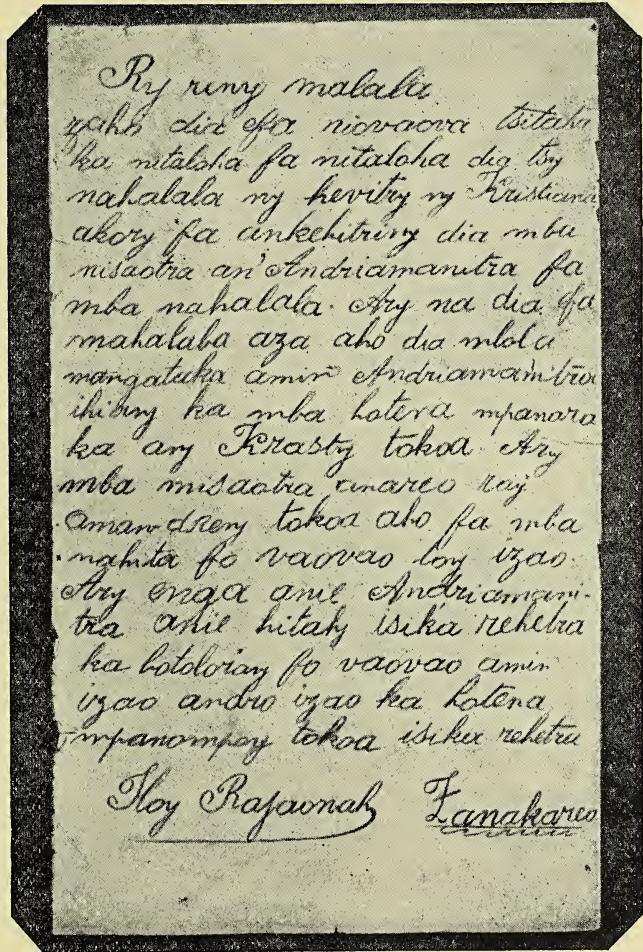 Ry reny malala
zaho dia efa niovaova tsitaha
ka nitaloha fa nitaloha dia tsy
nahalala ny hevitry ny Kristiana
akory fa ankehitriny dia mba
misaotra an' Andriamanitra fa
mba nahalala. Ary na dia efa
mahalala aza aho dia mbola
mangataka amin' Andriamanitra
ihiany ka mba hotena mpanara
ka any Krasty tokoa. Ary
mba misaotra anareo ray
aman-dreny tokoa aho fa mba
nahita fo vaovao toy izao.
Ary enga anie Andriamani-
tra anie hitahy isika rehetra
ka hotoloriany fo vaovao amin
izao andro izao ka hotena
mpanompoy tokoa isika rehetra
Iloy Rafaonah Zanakareo